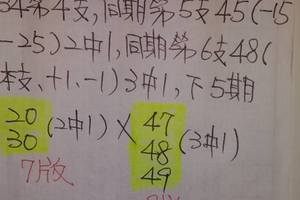 34第4支,同期第5支45(-15
-25)2中1,同期第6支48(
本支、+1、-1)3中1,下5期
20
30 (2中1) × 47
48
49 (3中1)
7版